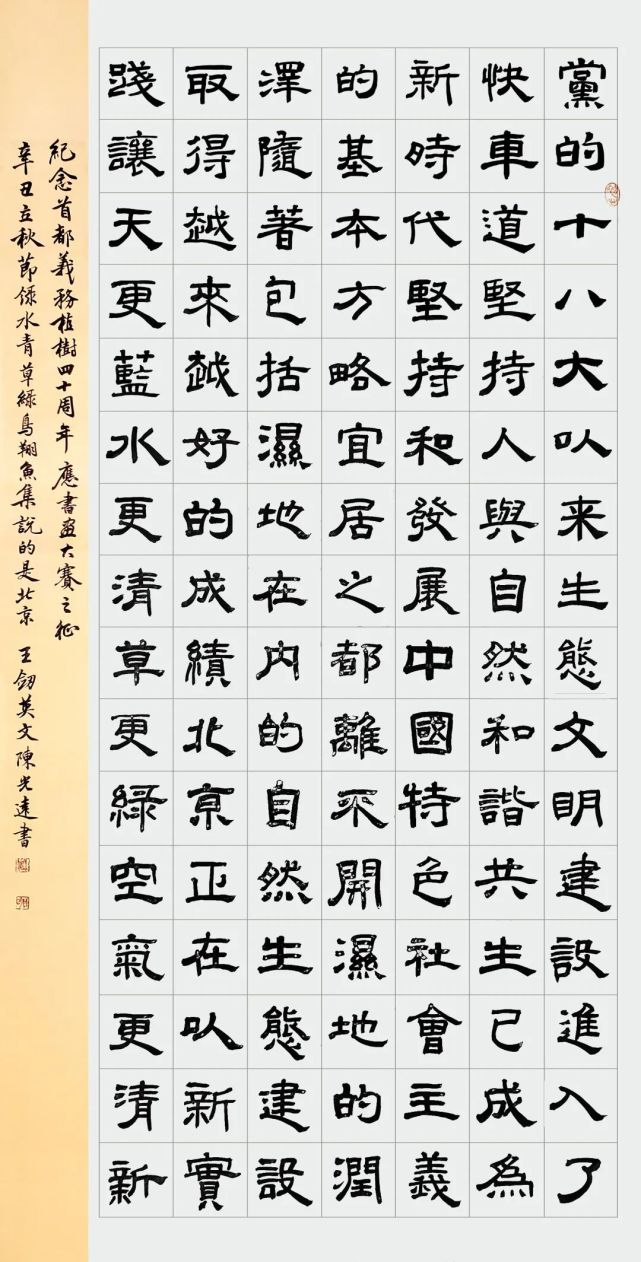 黨的十八大以来生態文明建設進入了
快車道堅持人與自然和諧共生已成為
新時代堅持和發展中國特色社會主義
的基本方略宜居之都離不開濕地的潤
澤隨著包括濕地在内的自然生態建設
取得越來越好的成績北京正在以新實
踐讓天更藍水更清草更綠空氣更清新
紀念首都義務植樹四十周年應書畫大賽之征
辛丑立秋節録水青草綠鳥翔魚集說的是北京 王劒英文陳光遠書